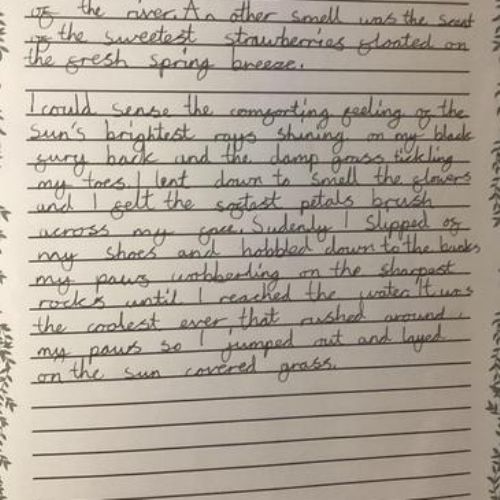 of the river. An other smell was the scent
of the sweetest strawberries floated on
the fresh spring breeze.
I could sense the comforting feeling of the
sun's brightest rays shining on my black
fury back and the damp grass tickling
my toes. I lent down to smell the flowers
and I felt the softast petals brush
across my face. Sudenly I slipped of
my shoes and hobbled down to the banks
my paws wobberling on the sharpest
rocks until I reached the water. It was
the coolest ever that rushed around
my paws so I jumped out and layed
on the sun covered grass.